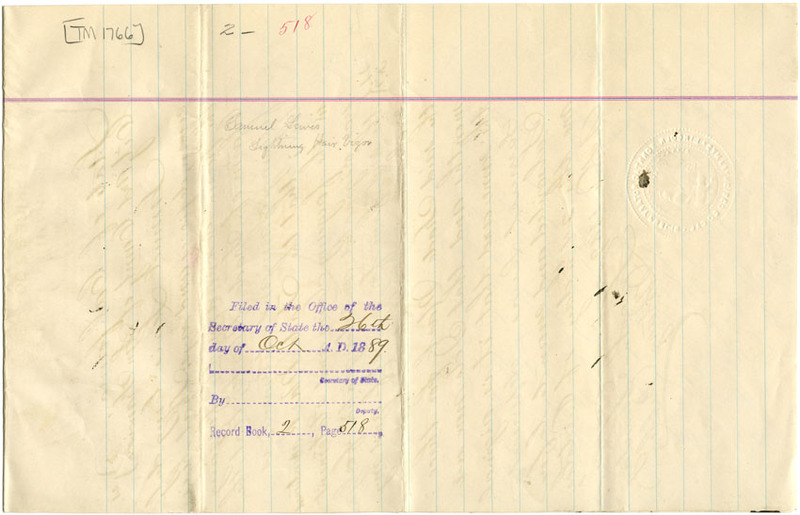 [TM 1766]
2 — 518
Samuel Lewis
Lightning Hair Vigor
Filed in the Office of the
Secretary of State the 26th
day of Oct A. D. 1889.
Secretary of State.
By
Deputy.
Record Book, 2, Page 518,